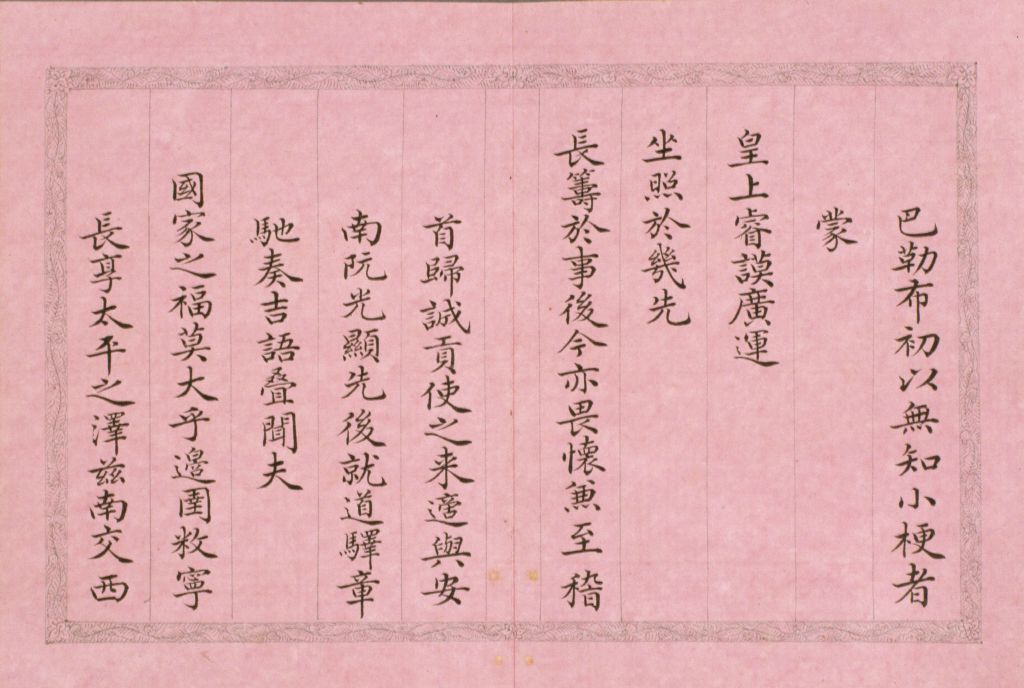 巴勒布初以無知小梗者
蒙
皇上睿謨廣運
坐照於幾先
長籌於事後今亦畏懷兼至稽
首歸誠貢使之来適與安
南阮光顯先後就道驛章
馳奏吉語疊聞夫
國家之福莫大乎邊圉敉寧
長享太平之澤茲南交西